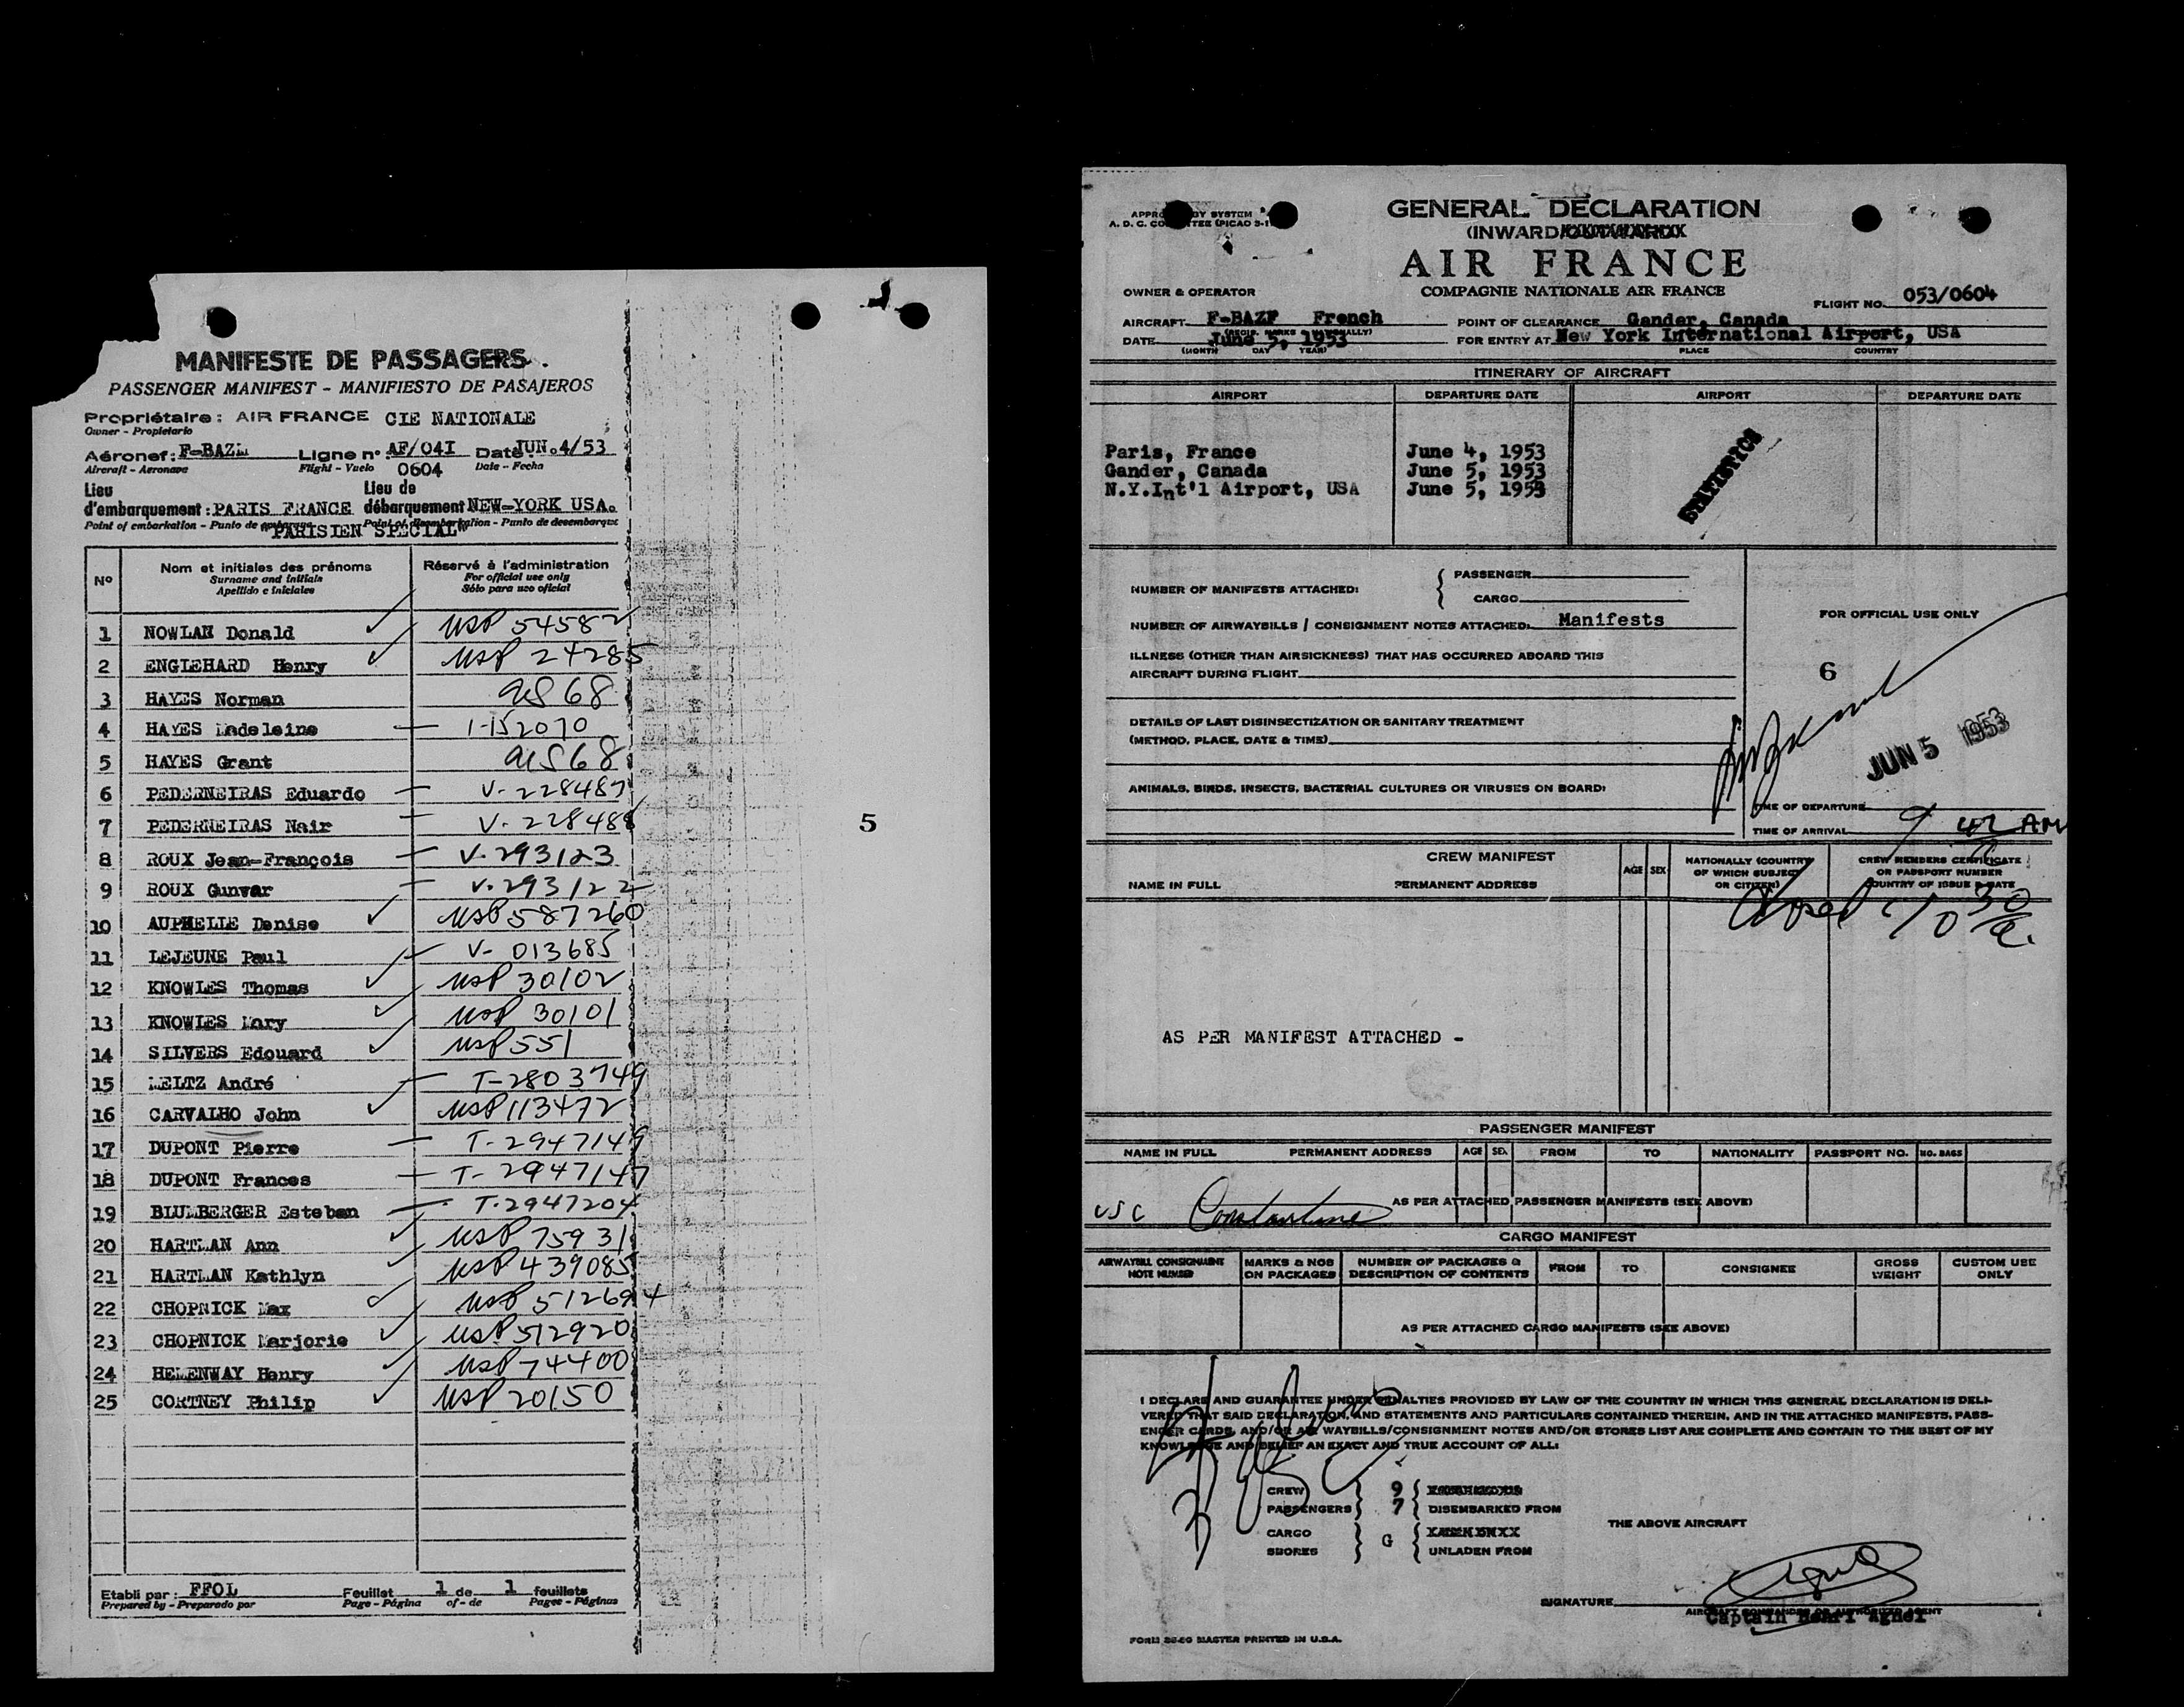 MANIFESTE DE PASSAGERS.
PASSENGER MANIFEST - MANIFIESTO DE PASAJEROS
Propriétaire: AIR FRANCE CIE NATIONALE
Owner - Propietario
Aéronef: Ligne nº AF/04I Date JUN.4/53
Aircraft - Aeronave Flight - Vuelo 0604 Date - Fecha
Lieu Lieu de
d'embarquement: PARIS FRANCE débarquement NEW-YORK USA.
Point of embarkation - Punto de Point of disembarkation - Punto de desembarque
"PARISIEN SPECIAL"
Nº Nom et initiales des prénoms Réservé à l'administration
Surname and initials For official use only
Apellido e iniciales Sólo para uso oficial
1 NOWLAN Donald USP 54582
2 ENGLEHARD Henry USP 24285
3 HAYES Norman
4 HAYES Madeleine 1-152070
5 HAYES Grant
6 PEDERNEIRAS Eduardo V-228487
7 PEDERNEIRAS Nair V-228488
8 ROUX Jean-François V-293123
9 ROUX Gunvar V-293122
10 AUPHELLE Denise USP 587260
11 LEJEUNE Paul V-013685
12 KNOWLES Thomas USP 30102
13 KNOWLES Mary USP 30101
14 SILVERS Edouard USP 551
15 MELTZ André T-2803749
16 CARVALHO John USP 113472
17 DUPONT Pierre T-2947149
18 DUPONT Frances T-2947147
19 BLUMBERGER Esteban T-2947204
20 HARTMAN Ann USP 75931
21 HARTMAN Kathlyn USP 439085
22 CHOPNICK Max USP 512694
23 CHOPNICK Marjorie USP 512920
24 HEMENWAY Henry USP 74400
25 CORTNEY Philip USP 20150
5
Etabli par: FFOL Feuillet 1 de 1 feuillets
Prepared by - Preparado por Page - Página of - de Pages - Páginas
GENERAL DECLARATION
(INWARD
AIR FRANCE
OWNER & OPERATOR COMPAGNIE NATIONALE AIR FRANCE
FLIGHT NO. 053/0604
AIRCRAFT F-BAZF French POINT OF CLEARANCE Gander, Canada
DATE June 5, 1953 FOR ENTRY AT New York International Airport, USA
(MONTH DAY YEAR) PLACE COUNTRY
ITINERARY OF AIRCRAFT
AIRPORT DEPARTURE DATE AIRPORT DEPARTURE DATE
Paris, France June 4, 1953
Gander, Canada June 5, 1953
N.Y.Int'l Airport, USA June 5, 1953
STATISTICS
NUMBER OF MANIFESTS ATTACHED: { PASSENGER
CARGO
NUMBER OF AIRWAYBILLS / CONSIGNMENT NOTES ATTACHED: Manifests
FOR OFFICIAL USE ONLY
ILLNESS (OTHER THAN AIRSICKNESS) THAT HAS OCCURRED ABOARD THIS
AIRCRAFT DURING FLIGHT
6
DETAILS OF LAST DISINSECTIZATION OR SANITARY TREATMENT
(METHOD, PLACE, DATE & TIME)
JUN 5 1953
ANIMALS, BIRDS, INSECTS, BACTERIAL CULTURES OR VIRUSES ON BOARD:
TIME OF DEPARTURE
TIME OF ARRIVAL 9 42 AM
CREW MANIFEST
NAME IN FULL PERMANENT ADDRESS AGE SEX NATIONALLY (COUNTRY OF WHICH SUBJECT OR CITIZEN) CREW MEMBERS CERTIFICATE OR PASSPORT NUMBER COUNTRY OF ISSUE & DATE
Closed 10 30
AS PER MANIFEST ATTACHED -
PASSENGER MANIFEST
NAME IN FULL PERMANENT ADDRESS AGE SEX FROM TO NATIONALITY PASSPORT NO. NO. BAGS
USC Constantine AS PER ATTACHED PASSENGER MANIFESTS (SEE ABOVE)
CARGO MANIFEST
AIRWAYBILL CONSIGNMENT NOTE NUMBER MARKS & NOS ON PACKAGES NUMBER OF PACKAGES & DESCRIPTION OF CONTENTS FROM TO CONSIGNEE GROSS WEIGHT CUSTOM USE ONLY
AS PER ATTACHED CARGO MANIFESTS (SEE ABOVE)
I DECLARE AND GUARANTEE UNDER PENALTIES PROVIDED BY LAW OF THE COUNTRY IN WHICH THIS GENERAL DECLARATION IS DELI-
VERED THAT SAID DECLARATION, AND STATEMENTS AND PARTICULARS CONTAINED THEREIN, AND IN THE ATTACHED MANIFESTS, PASS-
ENGER CARDS, AND/OR AIR WAYBILLS/CONSIGNMENT NOTES AND/OR STORES LIST ARE COMPLETE AND CONTAIN TO THE BEST OF MY
KNOWLEDGE AND BELIEF AN EXACT AND TRUE ACCOUNT OF ALL:
CREW 9
PASSENGERS 7 DISEMBARKED FROM
THE ABOVE AIRCRAFT
CARGO G
SHORES UNLADEN FROM
SIGNATURE
AIRCRAFT COMMANDER OR AUTHORIZED AGENT
Captain Henri Agnel
MASTER PRINTED IN U.S.A.